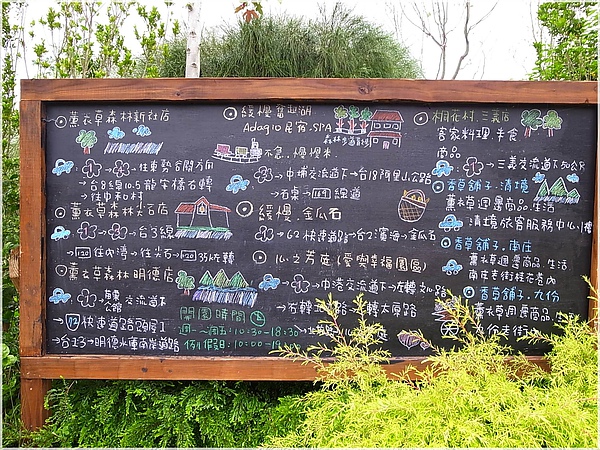 薰衣草森林新社店
往東勢谷關方向
台8線10.5 龍安橋右轉
往中和村
薰衣草森林尖石店
台3線
120 往內灣→往尖石→120 35K左轉
薰衣草森林 明德店
苗栗交流道下
72 快速道路
台13→明德水庫南岸道路
緩慢 奮起湖
Adagio 民宿.SPA
森林步道散步
不急.慢慢來.
中埔交流道下→台18阿里山公路
石桌→169線道
緩慢.金瓜石
62快速道路→台2濱海→金瓜石
心之芳庭(愛與幸福園區)
中港交流道下→左轉
右轉→左轉太原路
開園時間
週一~週五:10:30-18:30
例假日:10:00-19
桐花村.三義店
客家料理.美食
商品
三義交流道下
香草舖子.清境
薰衣草週邊商品.生活
清境旅客服務中心1樓
香草舖子.南庄
薰衣草週邊商品.生活
南庄老街桂花巷內
香草舖子.九份
薰衣草周邊商品.
九份老街